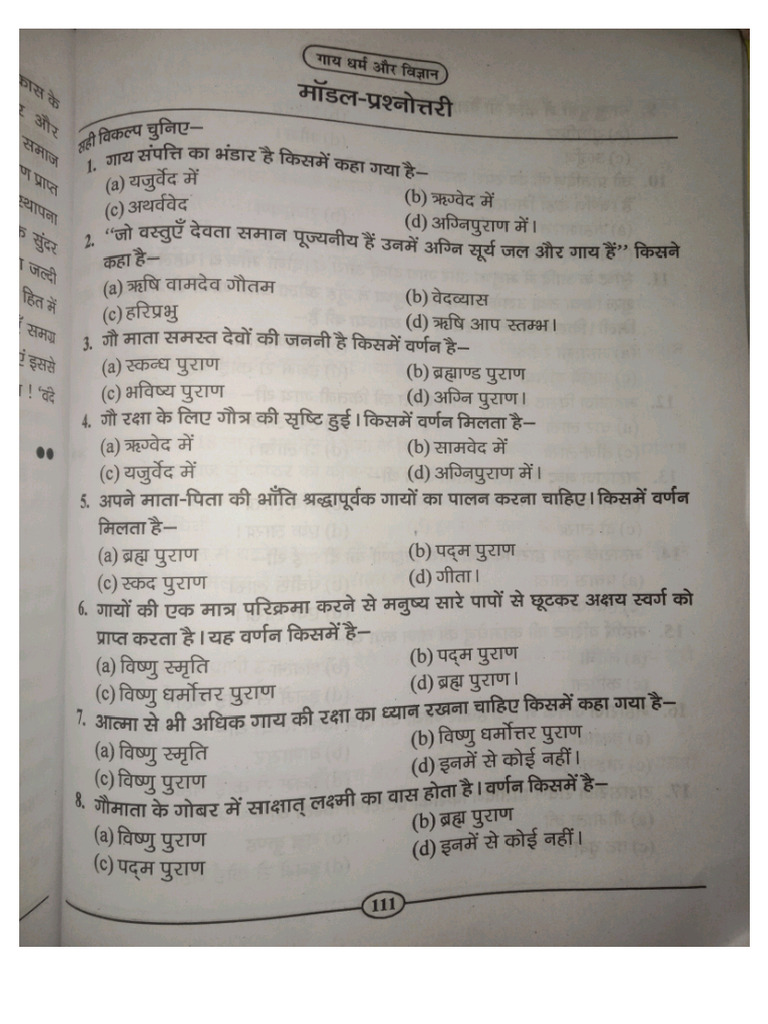 कास के
र और
समाज
ण प्राप्त
स्थापना
के सुंदर
ा जल्दी
हित में
समग्र
एं इससे
! 'वंदे
••
गाय धर्म और विज्ञान
मॉडल-प्रश्नोत्तरी
सही विकल्प चुनिए–
1. गाय संपत्ति का भंडार है किसमें कहा गया है–
(a) यजुर्वेद में
(b) ऋग्वेद में
(c) अथर्ववेद
(d) अग्निपुराण में।
2. "जो वस्तुएँ देवता समान पूज्यनीय हैं उनमें अग्नि सूर्य जल और गाय हैं" किसने
कहा है–
(a) ऋषि वामदेव गौतम
(b) वेदव्यास
(c) हरिप्रभु
(d) ऋषि आप स्तम्भ।
3. गौ माता समस्त देवों की जननी है किसमें वर्णन है–
(a) स्कन्ध पुराण
(b) ब्रह्माण्ड पुराण
(c) भविष्य पुराण
(d) अग्नि पुराण।
4. गौ रक्षा के लिए गौत्र की सृष्टि हुई। किसमें वर्णन मिलता है–
(a) ऋग्वेद में
(b) सामवेद में
(c) यजुर्वेद में
(d) अग्निपुराण में।
5. अपने माता-पिता की भाँति श्रद्धापूर्वक गायों का पालन करना चाहिए। किसमें वर्णन
मिलता है–
(a) ब्रह्म पुराण
(b) पद्म पुराण
(c) स्कद पुराण
(d) गीता।
6. गायों की एक मात्र परिक्रमा करने से मनुष्य सारे पापों से छूटकर अक्षय स्वर्ग को
प्राप्त करता है। यह वर्णन किसमें है–
(a) विष्णु स्मृति
(b) पद्म पुराण
(c) विष्णु धर्मोत्तर पुराण
(d) ब्रह्म पुराण।
7. आत्मा से भी अधिक गाय की रक्षा का ध्यान रखना चाहिए किसमें कहा गया है–
(a) विष्णु स्मृति
(b) विष्णु धर्मोत्तर पुराण
(c) विष्णु पुराण
(d) इनमें से कोई नहीं।
8. गौमाता के गोबर में साक्षात् लक्ष्मी का वास होता है। वर्णन किसमें है–
(a) विष्णु पुराण
(b) ब्रह्म पुराण
(c) पद्म पुराण
(d) इनमें से कोई नहीं।
111